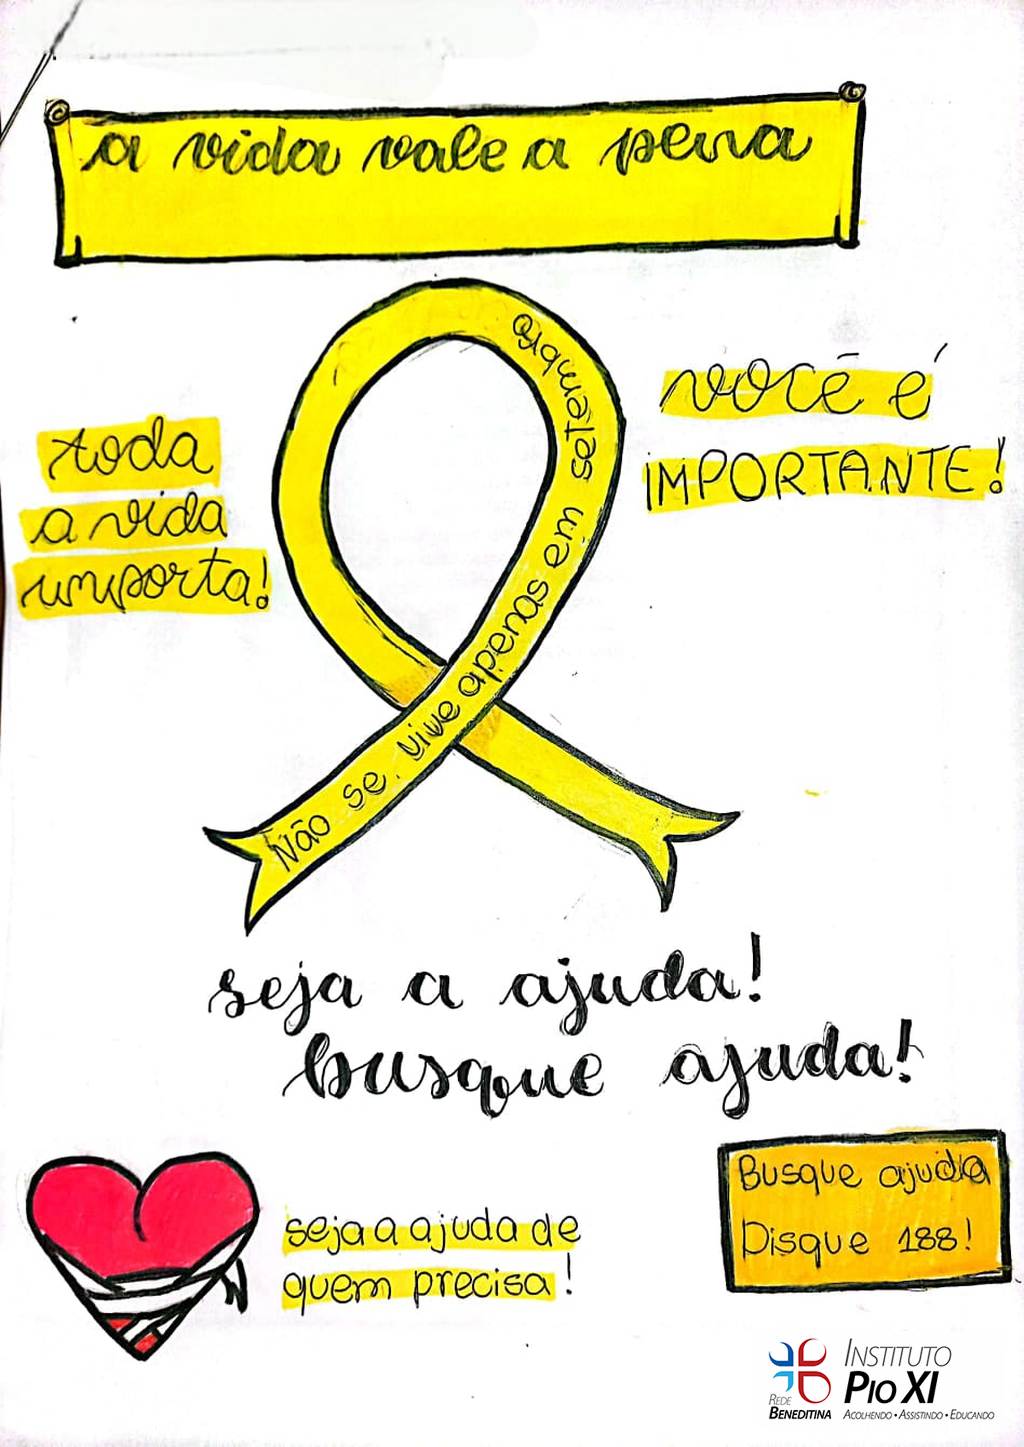 a vida vale a pena
Não se vive apenas em setembro
toda
a vida
importa!
você é
IMPORTANTE!
seja a ajuda!
busque ajuda!
seja a ajuda de
quem precisa!
Busque ajuda
Disque 188!
REDE
BENEDITINA
INSTITUTO
PIO XI
ACOLHENDO • ASSISTINDO • EDUCANDO